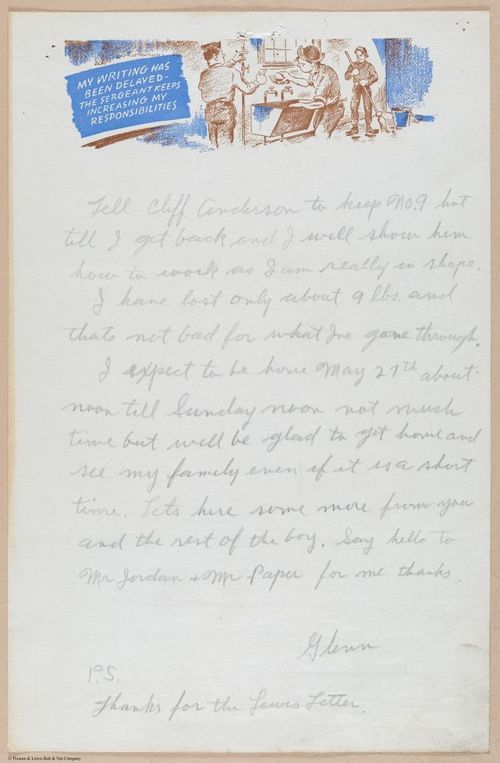 MY WRITING HAS
BEEN DELAYED-
THE SERGEANT KEEPS
INCREASING MY
RESPONSIBILITIES
Tell Cliff Anderson to keep No.9 hot
till I get back and I will show him
how to work as I am really in shape.
I have lost only about 9 lbs. and
thats not bad for what I've gone through.
I expect to be home May 27th about
noon till Sunday noon not much
time but will be glad to get home and
see my family even if it is a short
time. Lets hire some more from you
and the rest of the boy. Say hello to
Mr Jordan + Mr Paper for me thanks.
Glenn
P.S.
Thanks for the Lewis Letter.
© Franzen & Lewis Bolt & Nut Company